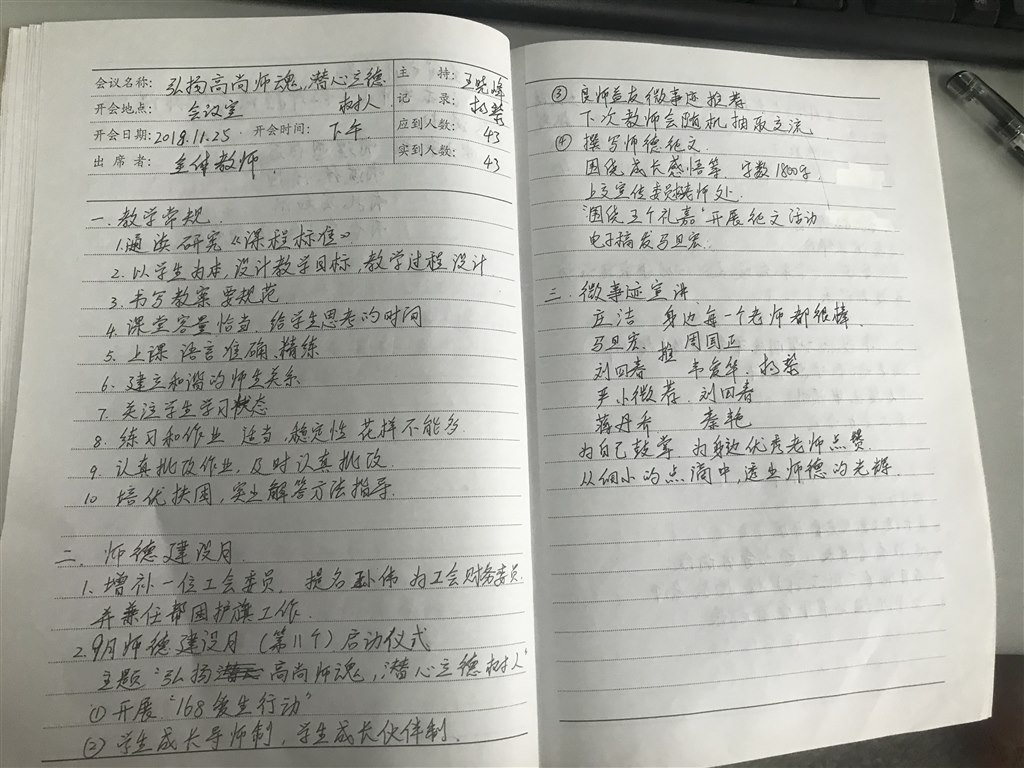 会议名称: 弘扬高尚师魂,潜心立德树人 主 持: 王晓峰
开会地点: 会议室 记 录: 杨
开会日期: 2018.11.25 开会时间: 下午 应到人数: 43
出 席 者: 全体教师. 实到人数: 43
一. 教学常规.
1.通读 研究《课程标准》
2.以学生为本,设计教学目标,教学过程设计
3.书写教案要规范
4.课堂容量恰当.给学生思考的时间
5.上课 语言准确、精练
6.建立和谐的师生关系
7.关注学生学习状态
8.练习和作业 适当、稳定性 花样不能多.
9.认真批改作业,及时认真批改.
10 培优扶困,突出解答方法指导.
二. 师德建设月.
1.增补一位工会委员 提名 孙伟 为工会财务委员.
并兼任帮困护旗工作.
2.9月师德建设月 (第11个) 启动仪式
主题“弘扬高尚师魂,潜心立德树人”
① 开展“168爱生行动”
② 学生成长导师制,学生成长伙伴制.
③ 良师益友微事迹推荐
下次教师会随机抽取交流.
④ 撰写师德征文.
围绕成长感悟等 字数1800字.
上交宣传委员 老师处.
“围绕五个礼嘉”开展征文活动
电子稿发马旦宏.
三. 微事迹宣讲
立洁 身边每一个老师都很棒.
马旦宏 推 周国正.
刘四春 韦爱华. 杨
尹小微荐. 刘四春
蒋丹香. 秦艳
为自己鼓掌 为身边优秀老师点赞.
从细小的点滴中,透出师德的光辉.